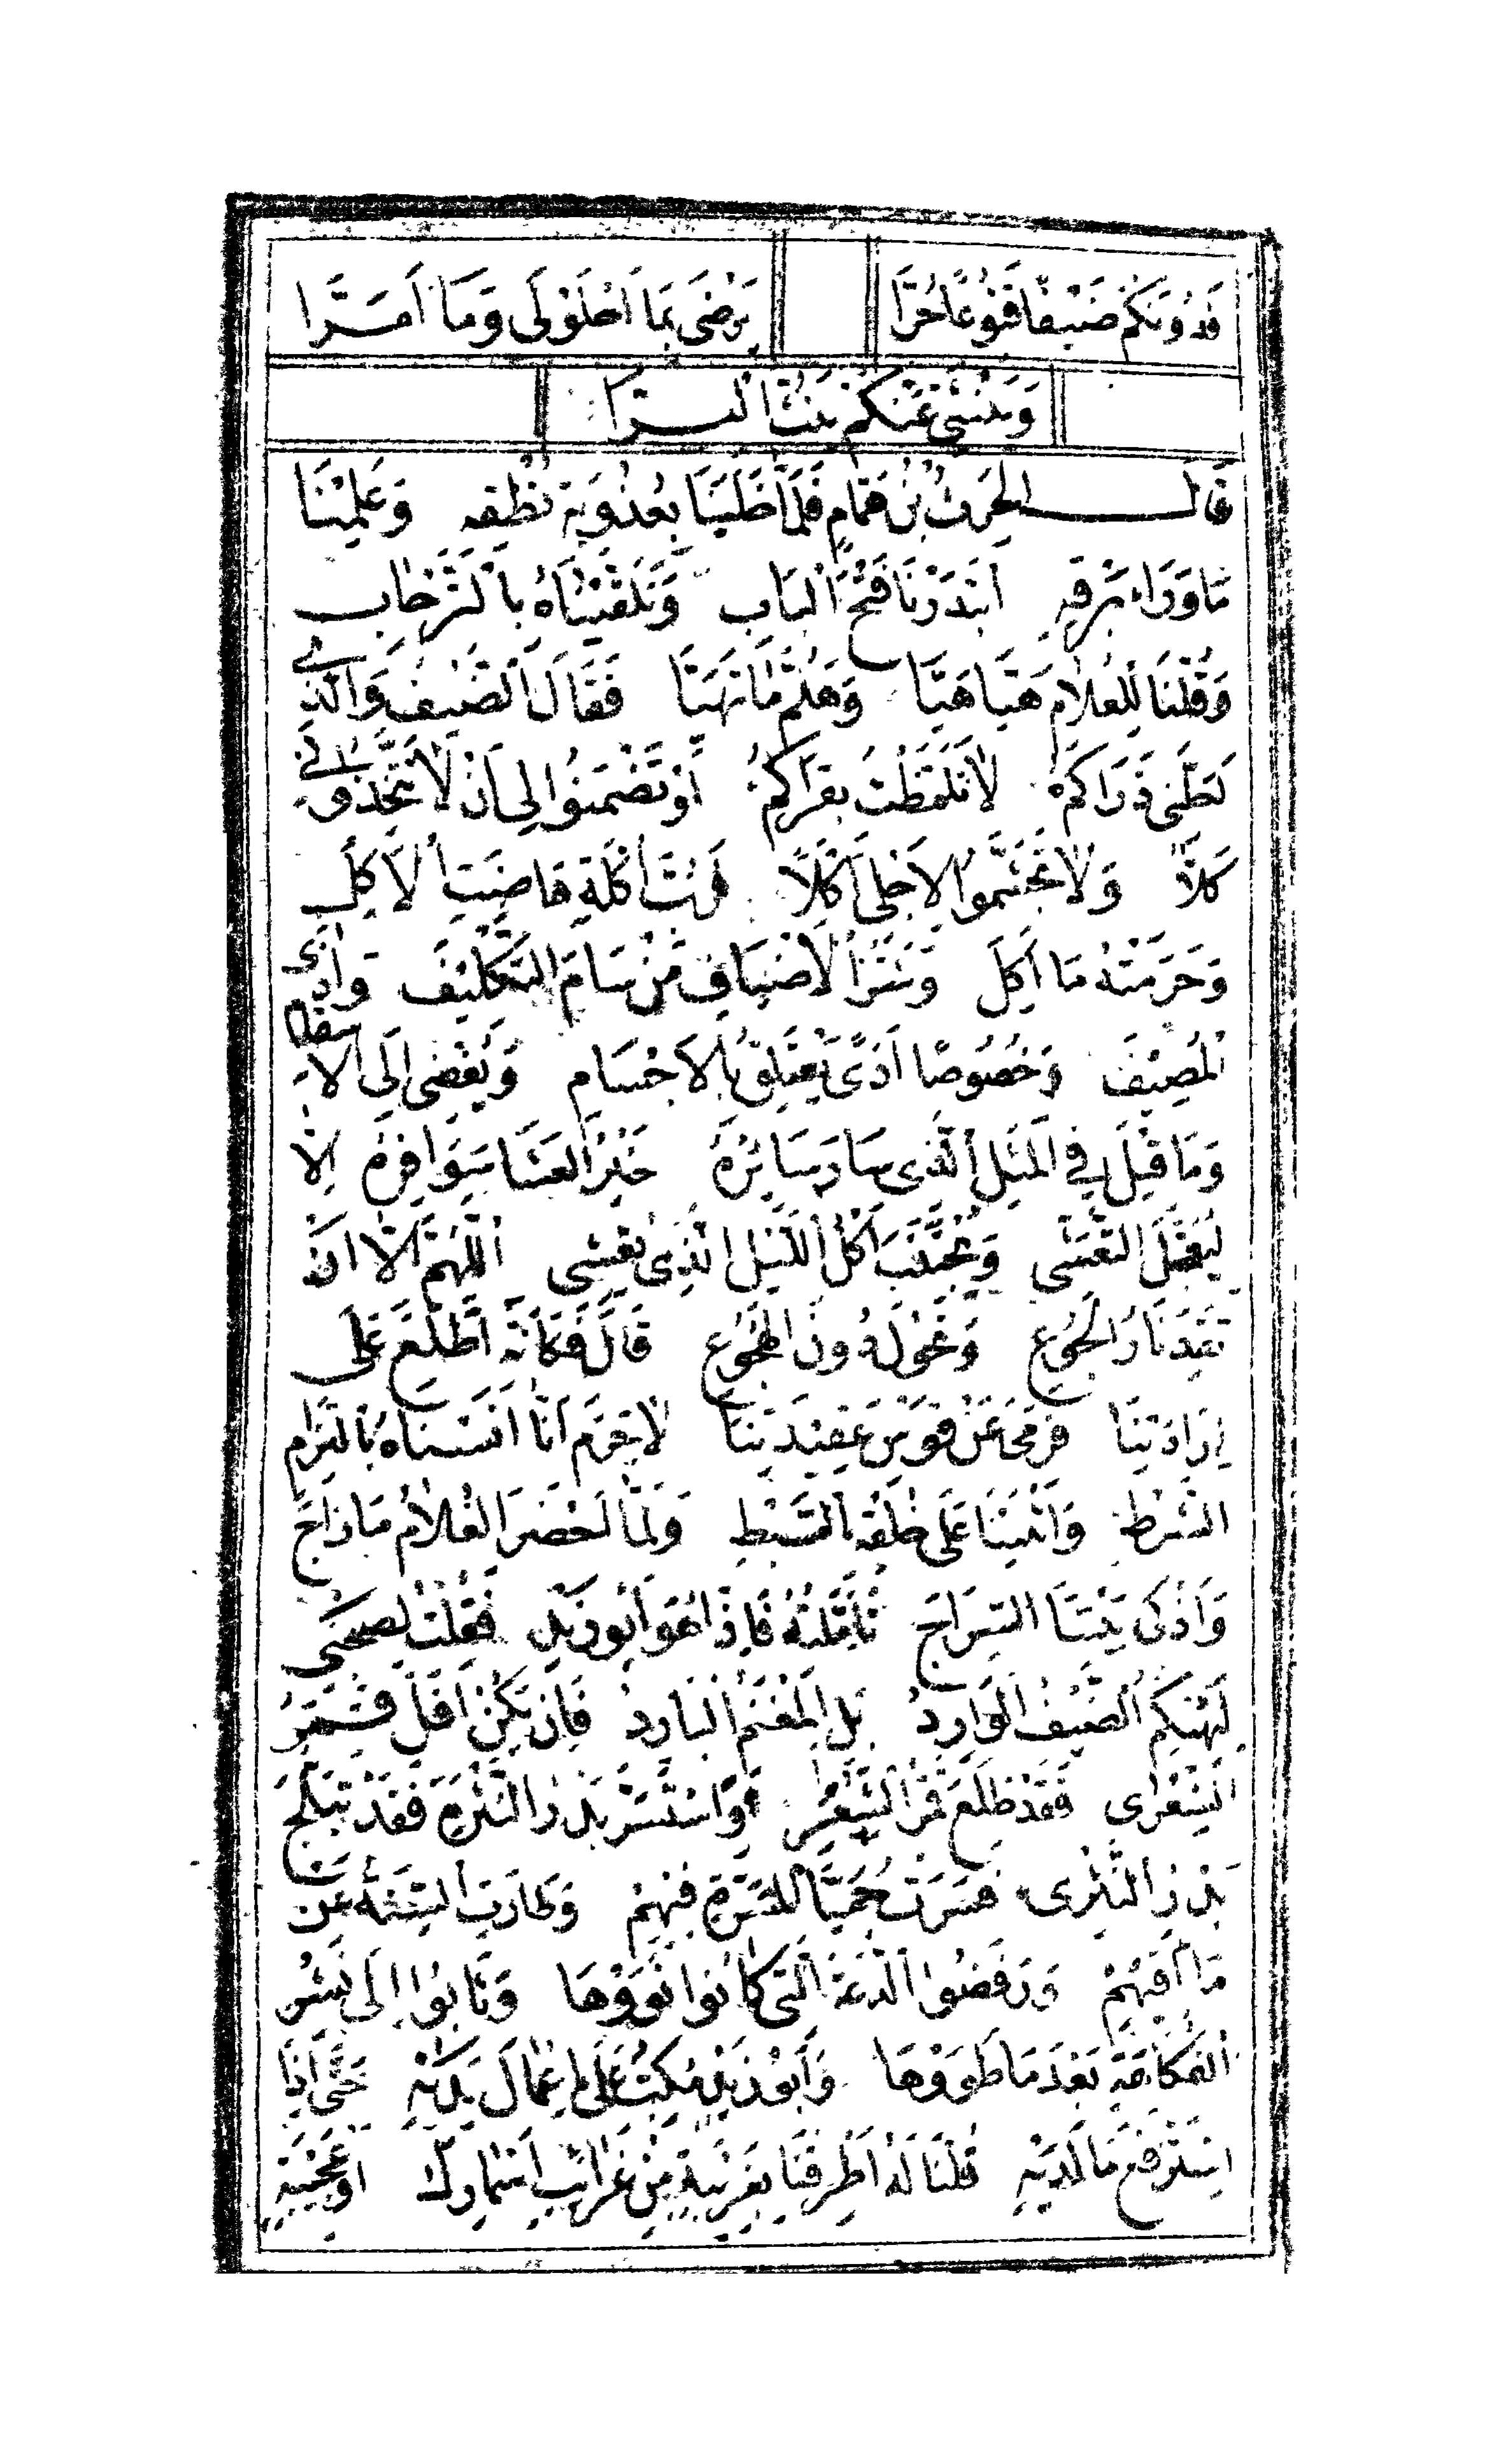 فَدُونَكُمْ ضَيْفًا قَنُوعًا حُرَّا يَرْضَى بِمَا احْلَوْلَى وَمَا أَمَرَّا
وَيَنْثَنِي عَنْكُمْ يَنُثُّ الْبِرَّا
قَالَ الحَرِثُ بْنُ هَمَّامٍ فَلَمَّا خَلَبَنَا بِعُذُوبَةِ نُطْقِهِ وَعَلِمْنَا
مَا وَرَاءَ بَرْقِهِ ابْتَدَرْنَا فَتْحَ الْبَابِ وَتَلَقَّيْنَاهُ بِالتَّرْحَابِ
وَقُلْنَا لِلْغُلَامِ هَيَّا هَيَّا وَهَلُمَّ مَا تَهَيَّا فَقَالَ الضَّيْفُ وَالَّذِي
أَحَلَّنِي ذَرَاكُمْ لَا تَلَمَّظْتُ بِقِرَاكُمْ أَوْ تَضْمَنُوا لِي أَنْ لَا تَتَّخِذُونِي
كَلًّا وَلَا تَجَشَّمُوا لِأَجْلِي أَكْلًا فَرُبَّ أَكْلَةٍ هَاضَتِ الْآكِلَ
وَحَرَمَتْهُ مَآكِلَ وَشَرُّ الْأَضْيَافِ مَنْ سَامَ التَّكْلِيفَ وَآذَى
الْمُضِيفَ وَخُصُوصًا أَذًى يَعْتَلِقُ بِالْأَجْسَامِ وَيُفْضِي إِلَى الْأَسْقَامِ
وَمَا قِيلَ فِي الْمَثَلِ الَّذِي سَارَ سَائِرُهُ خَيْرُ الْعَشَاءِ سَوَافِرُهُ إِلَّا
لِيُعَجَّلَ التَّعَشِّي وَيُجْتَنَبَ أَكْلُ اللَّيْلِ الَّذِي يُعْشِي اللَّهُمَّ إِلَّا أَنْ
تَقِدَ نَارُ الْجُوعِ وَتَحُولَ دُونَ الْهُجُوعِ قَالَ فَكَأَنَّهُ اطَّلَعَ عَلَى
إِرَادَتِنَا فَرَمَى عَنْ قَوْسِ عَقِيدَتِنَا لَا جَرَمَ أَنَّا آنَسْنَاهُ بِالْتِزَامِ
الشَّرْطِ وَأَثْنَيْنَا عَلَى خُلُقِهِ السَّبْطِ وَلَمَّا أَحْضَرَ الْغُلَامُ مَا رَاجَ
وَأَذْكَى بَيْنَنَا السِّرَاجَ تَأَمَّلْتُهُ فَإِذَا هُوَ أَبُو زَيْدٍ فَقُلْتُ لِصَحْبِي
لِيَهْنِكُمُ الضَّيْفُ الْوَارِدُ بَلِ الْمَغْنَمُ الْبَارِدُ فَإِنْ يَكُنْ أَفَلَ قَمَرُ
الشِّعْرَى فَقَدْ طَلَعَ قَمَرُ الشِّعْرِ أَوِ اسْتَسَرَّ بَدْرُ النَّثْرَةِ فَقَدْ تَبَلَّجَ
بَدْرُ النَّثْرِ فَسَرَتْ حُمَيَّا الْمَسَرَّةِ فِيهِمْ وَطَارَتِ السِّنَةُ عَنْ
مَآقِيهِمْ وَرَفَضُوا الدَّعَةَ الَّتِي كَانُوا نَوَوْهَا وَثَابُوا إِلَى نَشْرِ
الْفُكَاهَةِ بَعْدَ مَا طَوَوْهَا وَأَبُو زَيْدٍ مُكِبٌّ عَلَى إِعْمَالِ يَدَيْهِ حَتَّى إِذَا
اسْتَرْفَعَ مَا لَدَيْهِ قُلْنَا لَهُ أَطْرِفْنَا بِغَرِيبَةٍ مِنْ غَرَائِبِ أَسْمَارِكَ أَوْ عَجِيبَةٍ